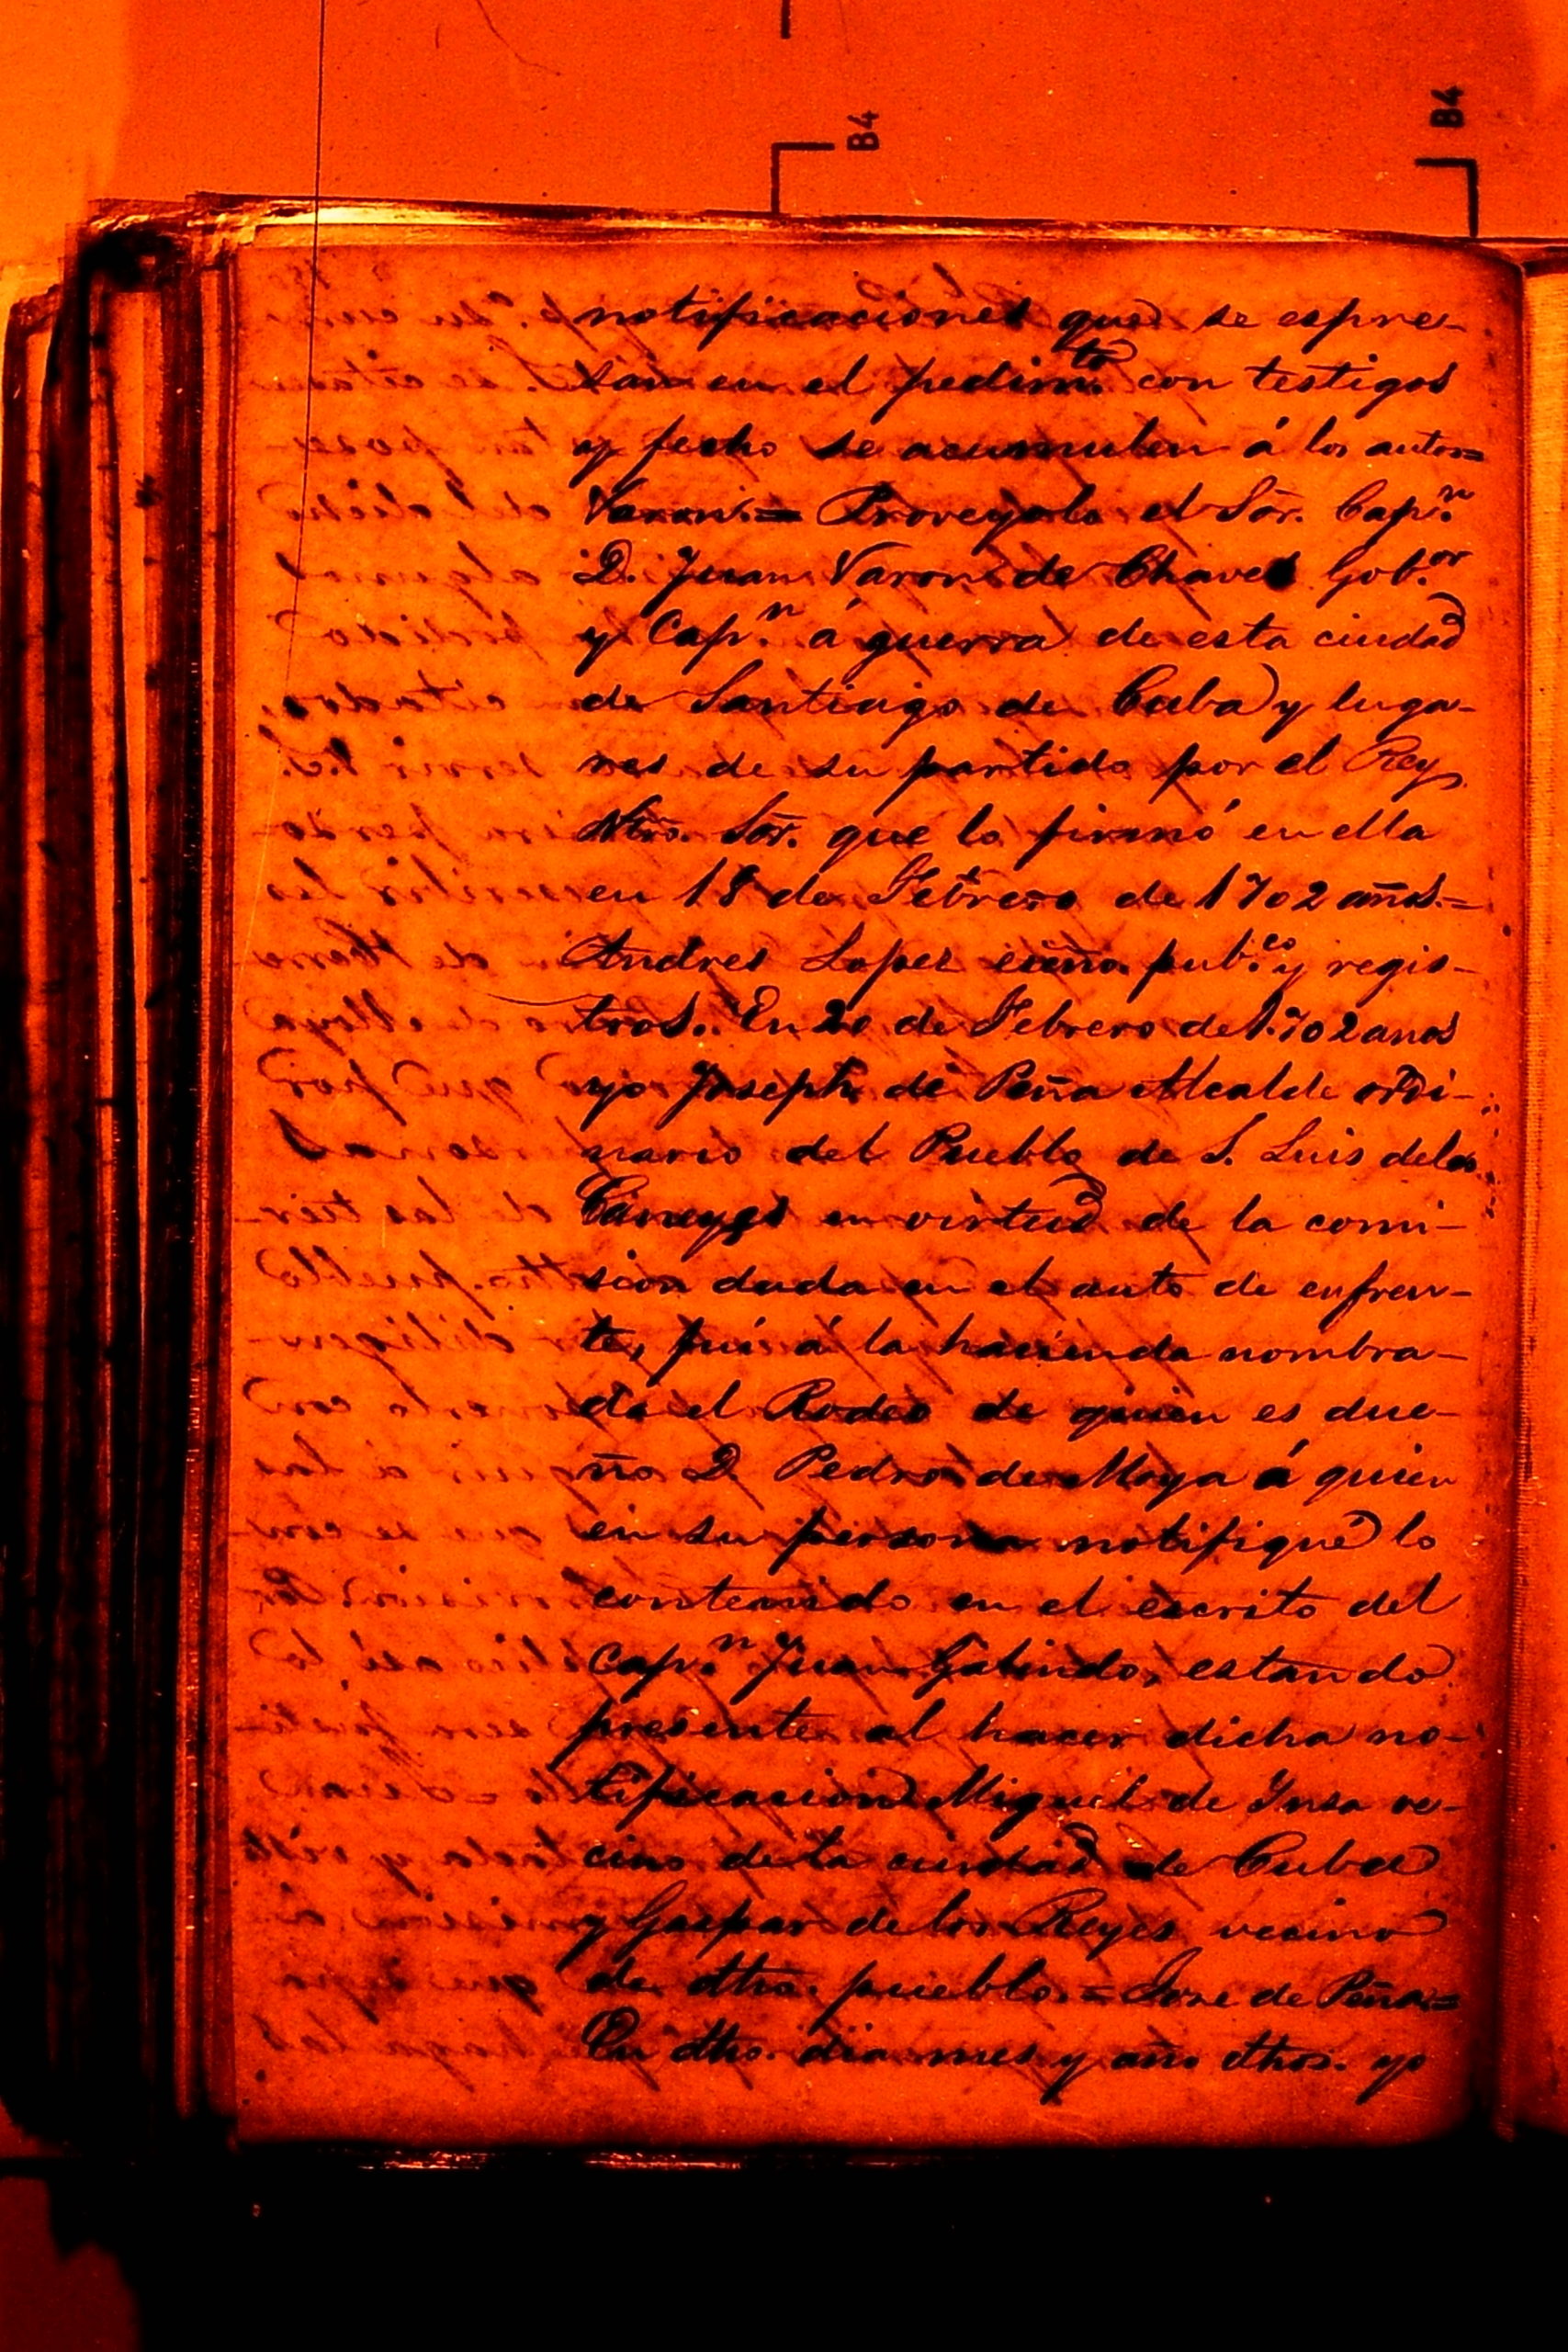 B4
B4
notificaciones que se espre-
san en el pedim.to con testigos
y fecho se acumulen á los autos=
Varon.= Proveyolo el Sõr. Cap.n
D. Juan Varon de Chaves Gob.or
y Cap.n á guerra de esta ciudad
de Santiago de Cuba y luga-
res de su partido por el Rey
Ntro. Sõr. que lo firmó en ella
en 18 de Febrero de 1702 años.=
Andres Lopez essño. pub.co y regis-
tros. En 20 de Febrero de 1702 anos
yo Joseph de Peña Alcalde ordi-
nario del Pueblo de S. Luis delos
Caneyes en virtud de la comi-
sion dada en el auto de enfren-
te, fuí á la hacienda nombra-
da el Rodeo de quien es due-
ño D. Pedro de Moya á quien
en su persona notifiqué lo
contenido en el escrito del
Cap.n Juan Galindo, estando
presente al hacer dicha no-
tificacion Miguel de Ynsa ve-
cino de la ciudad de Cuba
y Gaspar de los Reyes vecino
de dho. pueblo.= Jose de Peña=
En dho. dia mes y año dhos. yo